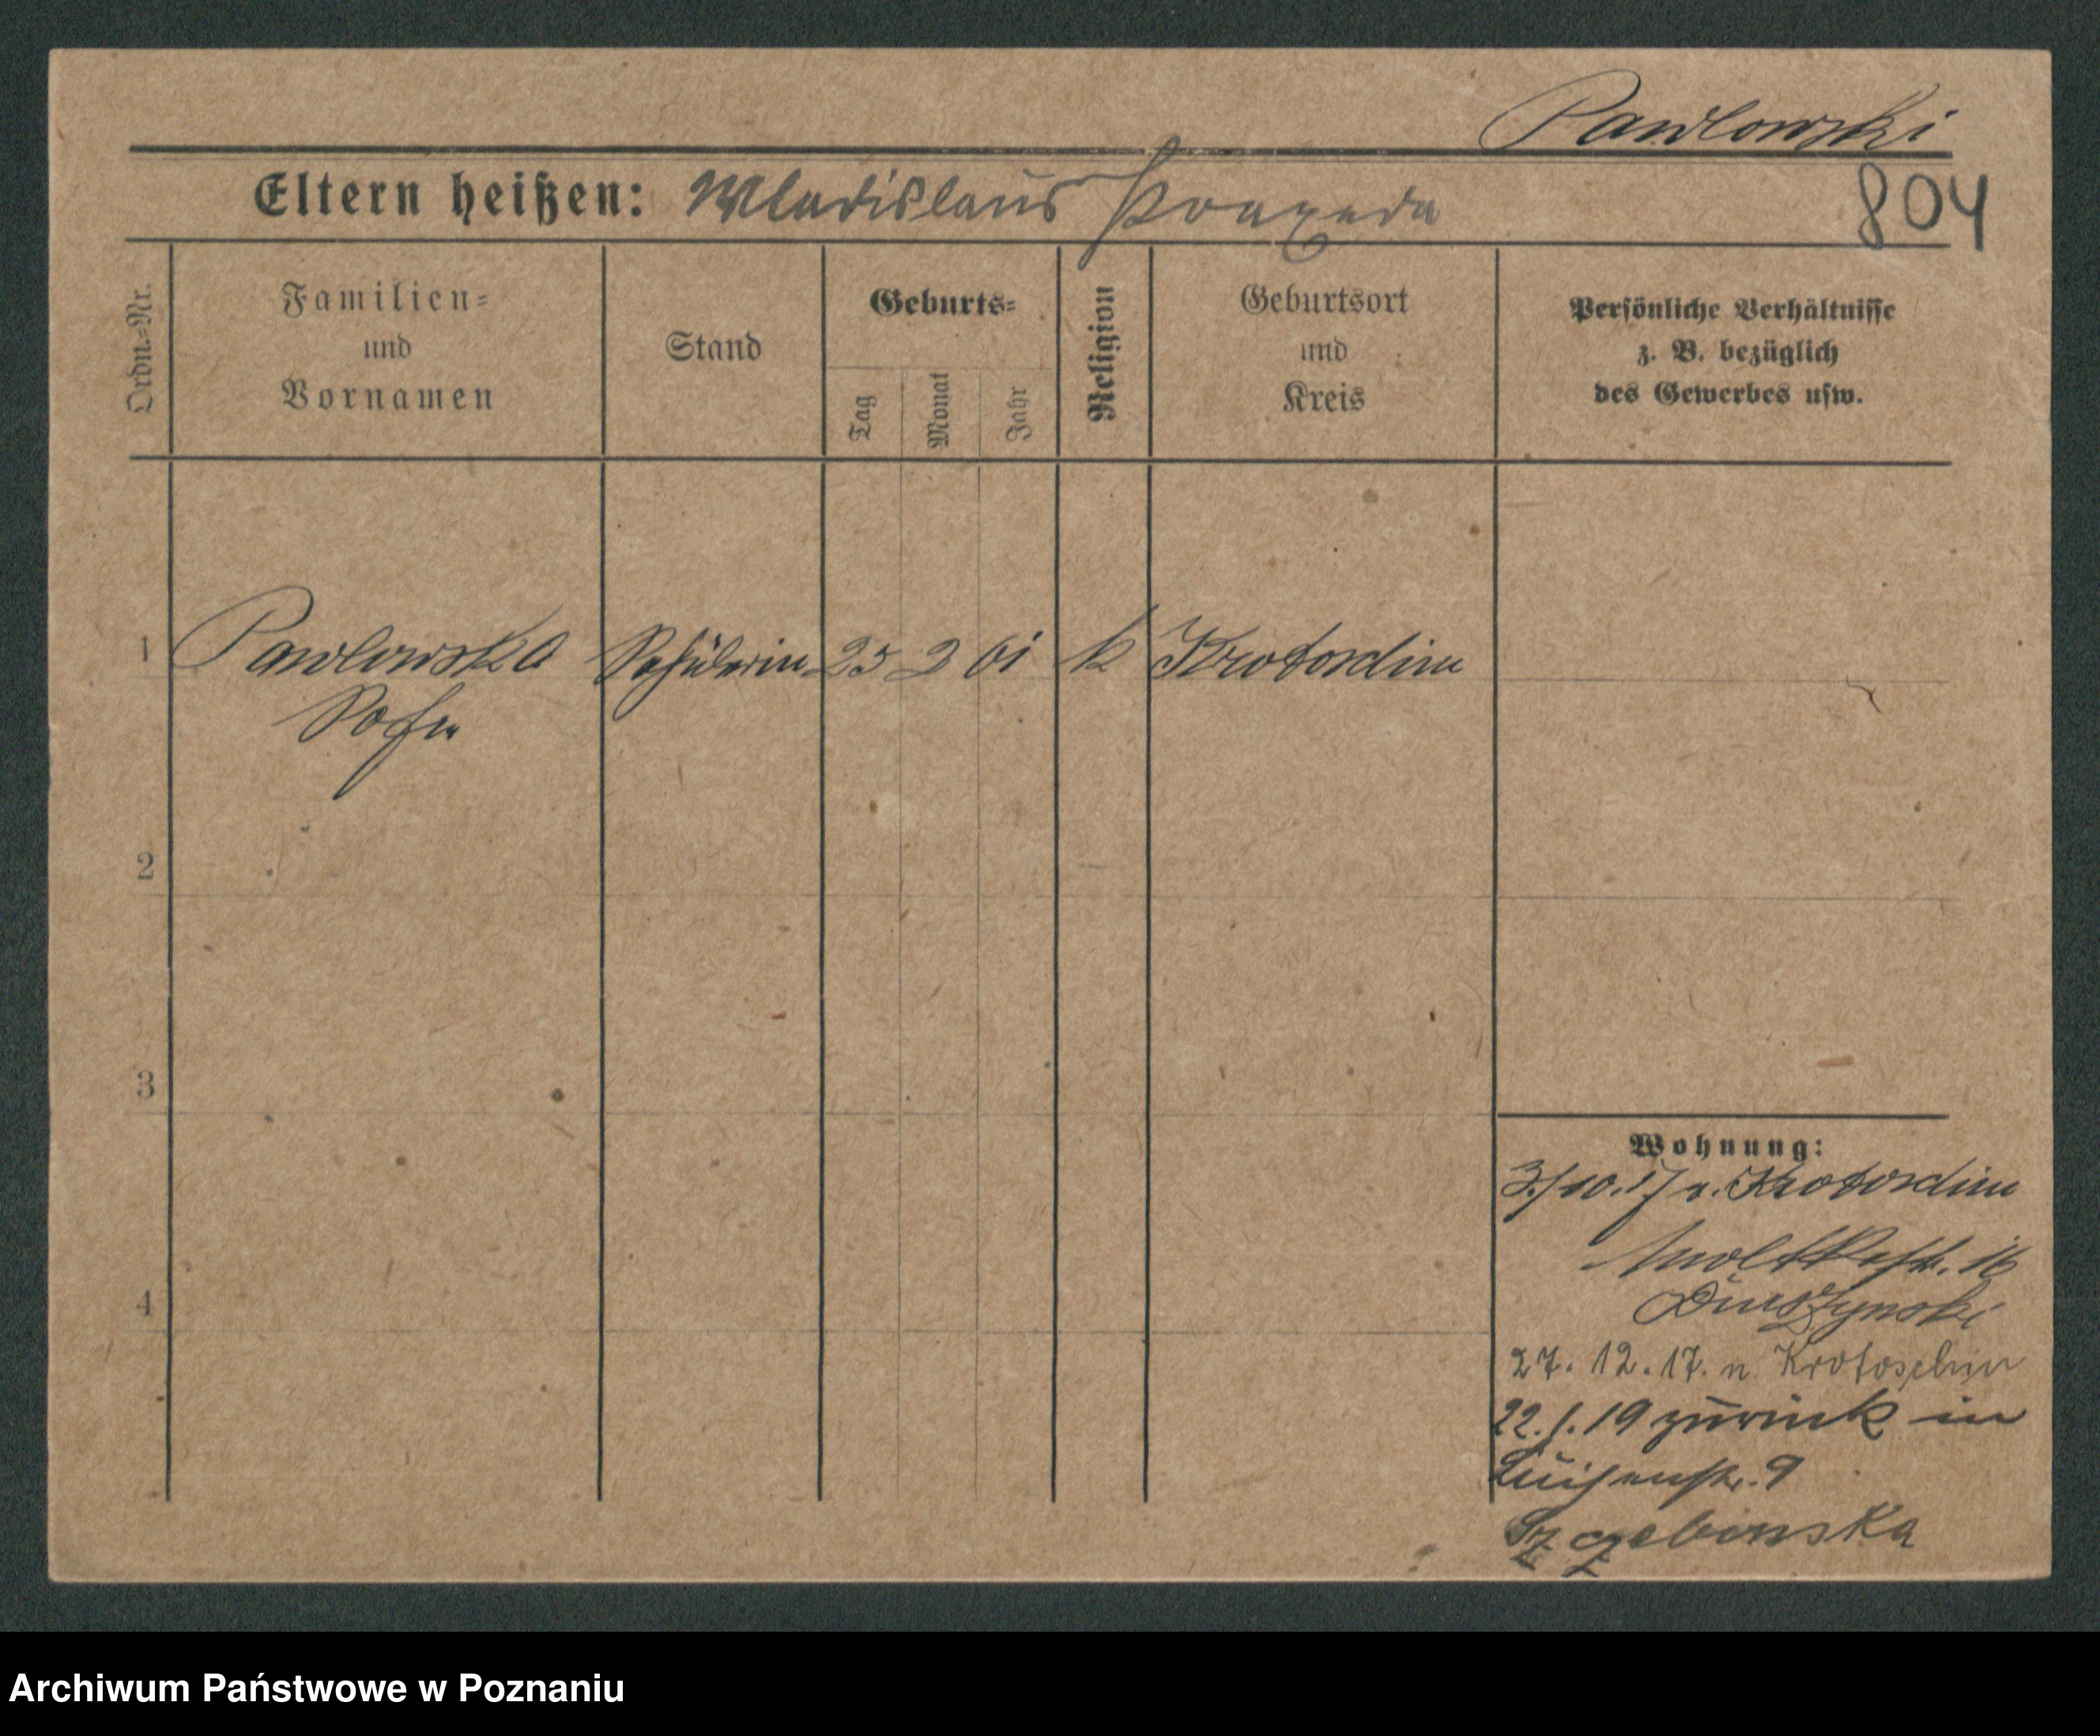 Pawlowski
Eltern heißen: Wladislaus Praxeda
804
Ordn.=Nr.
Familien=
und
Vornamen
Stand
Geburts=
Tag
Monat
Jahr
Religion
Geburtsort
und
Kreis
Persönliche Verhältnisse
z. B. bezüglich
des Gewerbes usw.
1 Pawlowska Schülerin 25 2 01 k Krotoschin
Sofie
2
3
4
Wohnung:
3/10.17 v. Krotoschin
Moltkestr. 16
27. 12. 17. n Krotoschin
22.1.19 zurück in
Luisenstr. 9
Archiwum Państwowe w Poznaniu